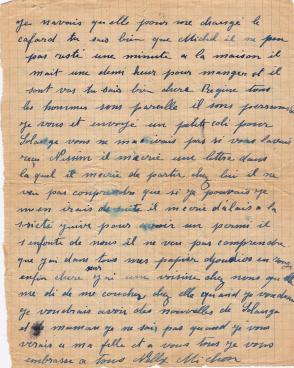 je navais qu elle pour me changé le
cafard tu sais bien que Michel il ne
pas resté une minute a la maison il
mait une demi heur pour manger et il
sont vas tu sais bien chere Regine tous
les hommes sons pareille il sons
je vous et envoyé un petit coli pour
Solange vous ne mavivais pas si vous lavais
reçu Nissim il macrié une lettre dans
la quel il mecrie de partir chez lui il ne
veu pas comprendre que si je pouvais je
men irais de suite il mecrie dalais a la
pour avoir un permi il
senfoute de nous il ne veu pas comprendre
que jai dans mes papier
enfin chere jai une voisine chez nous que
me di de me coucher chez elle quand je voudrais
je voudrais avoir des nouvelles de Solange
et maman je ne sais pas quand je vous
verais a ma fille et a vous tous je vous
embrasse a tous Nelly Michon